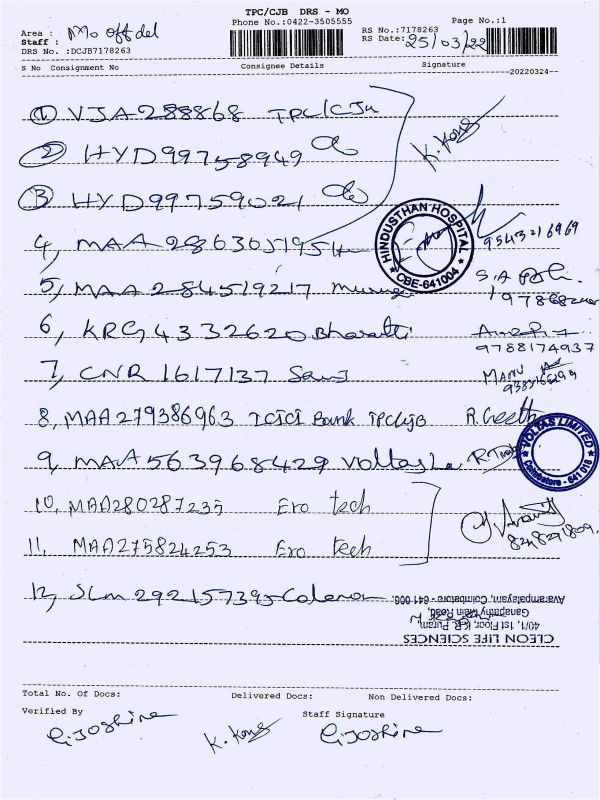 TPC/CJB DRS - MO
Phone No.:0422-3505555
Page No.:1
Area : Mo off del
Staff :
DRS No. :DCJB7178263
RS No.:7178263
RS Date: 25/03/22
S No Consignment No Consignee Details Signature
20220324
1 VJA288868 TPC/CJB
2 HYD99758949 do
3 HYD99759021 do
K. Kong
4, MAA 286305195
HINDUSTHAN HOSPITAL
CBE-641004
9543216969
5, MAA 284519217
6, KRG 4332620 Bharatti
9788174937
7, CNR 1617137
MANU
8, MAA279386963 ICICI Bank TPC/CJB R. Geeth
9, MAA 563968429 Voltas
VOLTAS LIMITED
Coimbatore - 641 018
10, MAA280287235 Ero tech
11, MAA275824253 Ero tech
8248291809
12, SLM 292157395
CLEON LIFE SCIENCES
40/1, 1st Floor, K.R. Puram,
Ganapathy Main Road,
Avarampalayam, Coimbatore - 641 006.
Total No. Of Docs: Delivered Docs: Non Delivered Docs:
Verified By Staff Signature
G. Joshine K. Kong G. Joshine